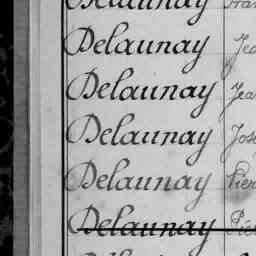 Delaunay Fran
Delaunay Jea
Delaunay Jean
Delaunay Jose
Delaunay Pier
Delaunay Pie